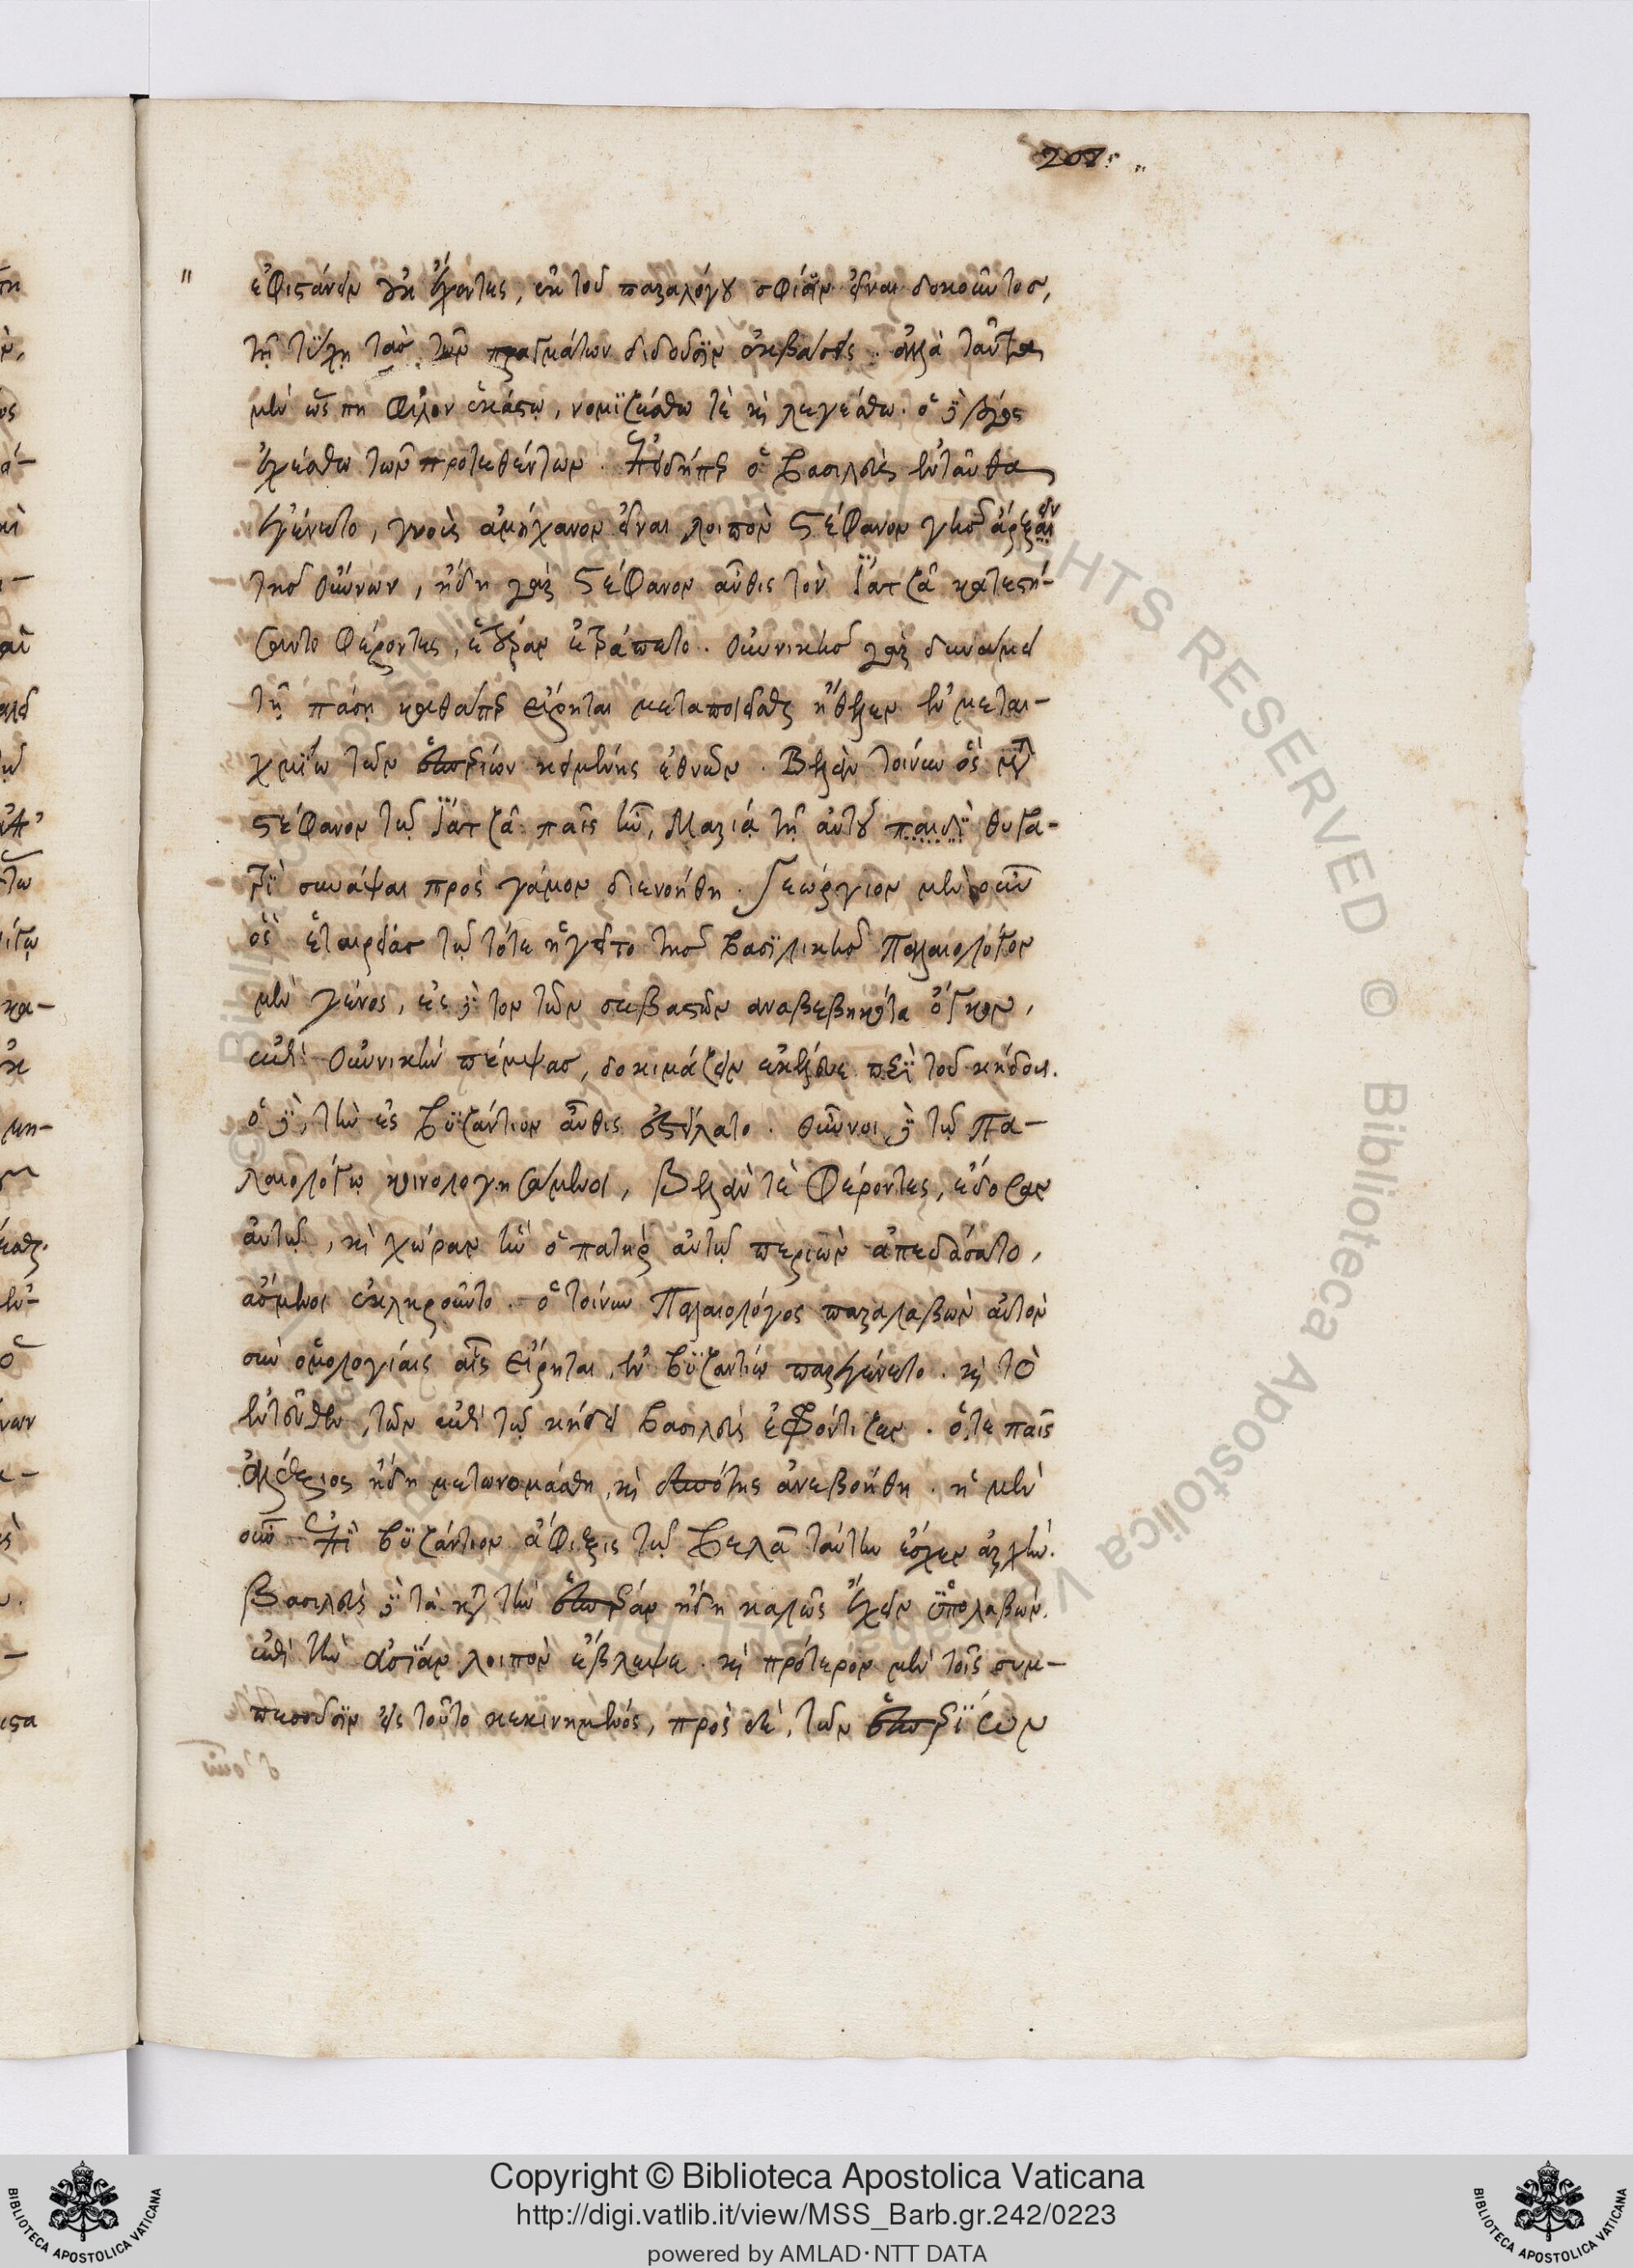 208
ἐφιστάνειν οὐκ ἔχοντες, ἐκ τοῦ παραλόγου σφίσιν εἶναι δοκοῦντος,
τῇ τύχῃ τὰς τῶν πραγμάτων διδοῦσιν ἐκβάσεις. ἀλλὰ ταῦτα
μὲν ὥς πη φίλον ἑκάστῳ, νομιζέσθω τὲ καὶ λεγέσθω. ὁ δὲ λόγος
ἐχέσθω τῶν προτεθέντων. ἐπειδήπερ ὁ βασιλεὺς ἐνταῦθα
ἐγένετο, γνοὺς ἀμήχανον εἶναι λοιπὸν Στέφανον γῆς ἄρξειν
τῆς Οὔννων, ἤδη γὰρ Στέφανον αὖθις τὸν Ἰατζᾶ κατεστή-
σαντο φέροντες, ἑτέραν ἐτράπετο. Οὐννικῆς γὰρ δυνάμει
τῇ πάσῃ καθάπερ εἴρηται μεταποιεῖσθαι ἤθελεν ἐν μεται-
χμίῳ τῶν ἑσπερίων κειμένης ἐθνῶν. Βελὰν τοίνυν ὃς μετὰ
Στέφανον τῷ Ἰατζᾶ παῖς ἦν, Μαρίᾳ τῇ αὐτοῦ παιδὶ θυγα-
τρὶ συνάψαι πρὸς γάμον διενοήθη. Γεώργιον μὲν οὖν
ὃς ἑταιρείας τῷ τότε ἡγεῖτο τῆς βασιλικῆς Παλαιολόγον
μὲν γένος, εἰς δὲ τὸν τῶν σεβαστῶν ἀναβεβηκότα ὄγκον,
ἐπὶ Οὐννικὴν πέμψας, δοκιμάζειν ἐκέλευε περὶ τοῦ κήδους.
ὁ δὲ, τὴν ἐς Βυζάντιον αὖθις ἐστείλατο. Οὖννοι δὲ τῷ Πα-
λαιολόγῳ κοινολογησάμενοι, Βελάν τὲ φέροντες, ἔδοσαν
αὐτῷ, καὶ χώραν ἣν ὁ πατὴρ αὐτῷ περιὼν ἀπεδάσατο,
ἄσμενοι ἐκληροῦντο. ὁ τοίνυν Παλαιολόγος παραλαβὼν αὐτὸν
σὺν ὁμολογίαις αἷς εἴρηται, ἐν Βυζαντίῳ παρεγένετο. καὶ τὸ
ἐντεῦθεν, τῶν ἐπὶ τῷ κήδει βασιλεὺς ἐφρόντιζεν. ὅ, τε παῖς
Ἀλέξιος ἤδη μετωνομάσθη, καὶ δεσπότης ἀνεβοήθη. ἡ μὲν
οὖν ἐπὶ Βυζάντιον ἄφιξις τῷ Βελᾶ ταύτην ἔσχεν ἀρχήν.
Βασιλεὺς δὲ τὰ κατὰ τὴν ἑσπέραν ἤδη καλῶς ἔχειν ὑπολαβών.
ἐπὶ τὴν ἀσίαν λοιπὸν ἔβλεψε. καὶ πρότερον μὲν τοῖς συμ-
πεσοῦσιν εἰς τοῦτο κεκινημένος, πρὸς δὲ, τῶν ἑσπερίων